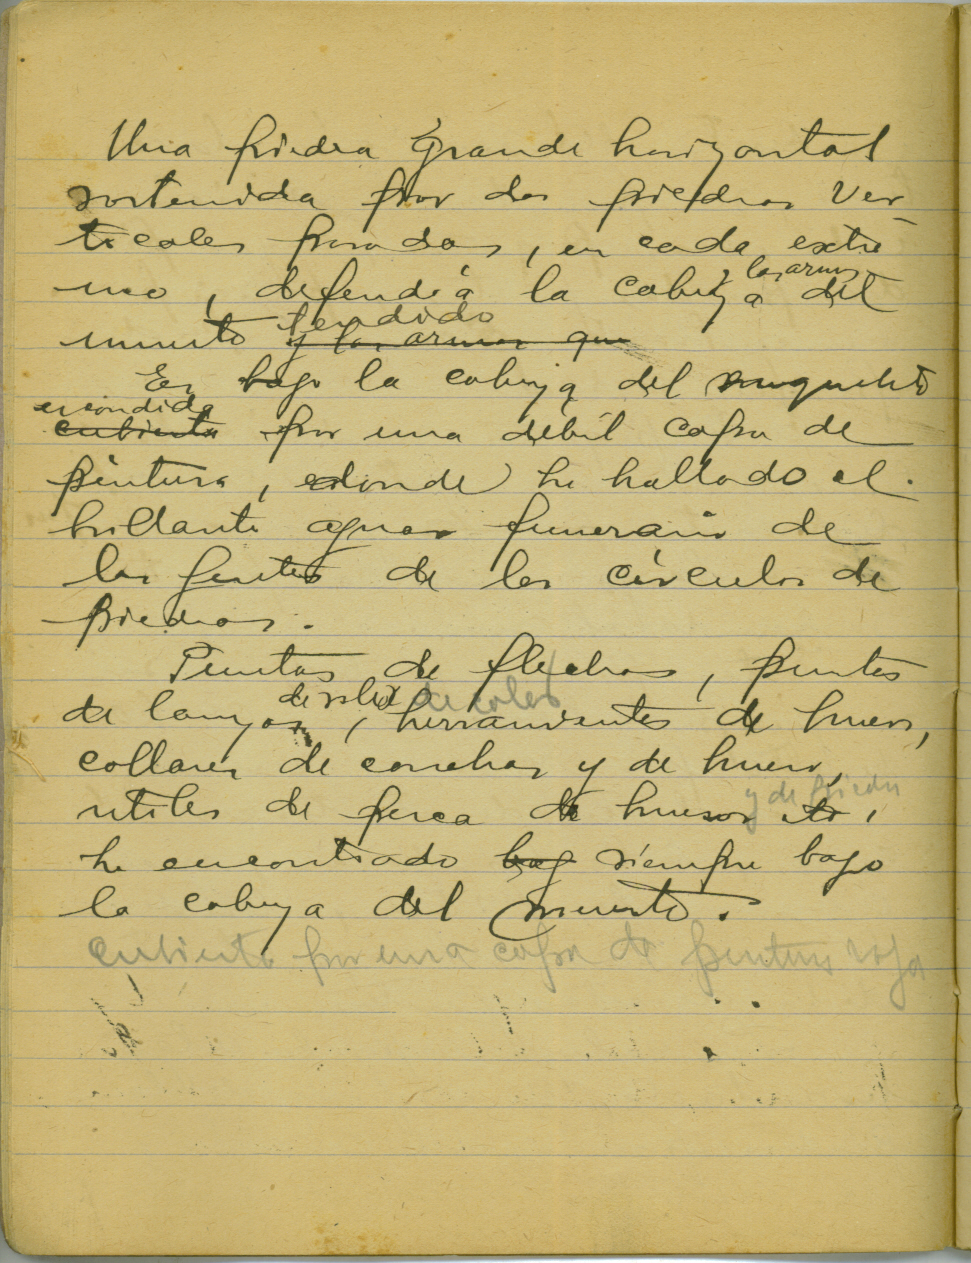 Una piedra grande horizontal
sostenida por dos piedras ver
ticales paradas, en cada extre
mo, defendía la cabeza y las armas del
muerto tendido y las armas que
Es bajo la cabeza del esqueleto
escondida cubierta por una débil capa de
pintura, donde he hallado el
brillante ajuar funerario de
las gentes de los círculos de
piedras.
Puntas de flechas, puntas
de lanzas de silex de color, herramientas de hueso,
collares de conchas y de hueso,
utiles de pesca de huesos y de piedra,
he encontrado baj siempre bajo
la cabeza del muerto.
cubierto por una capa de pintura roja